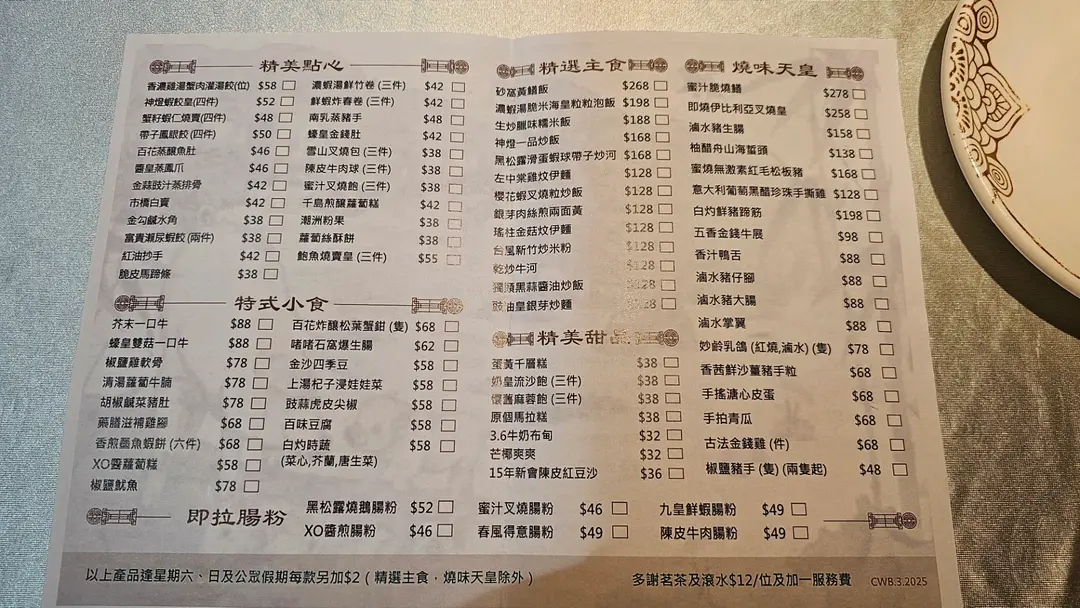 精美點心
香濃雞湯蟹肉灌湯餃(位) $58
神燈蝦餃皇(四件) $52
蟹籽蝦仁燒賣(四件) $48
帶子鳳眼餃(四件) $50
百花蒸釀魚肚 $46
醬皇蒸鳳爪 $46
金蒜豉汁蒸排骨 $42
市橋白賣 $42
金勾鹹水角 $38
富貴瀨尿蝦餃(兩件) $38
紅油抄手 $42
脆皮馬蹄條 $38
濃蝦湯鮮竹卷(三件) $42
鮮蝦炸春卷(三件) $42
南乳蒸豬手 $48
蠔皇金錢肚 $42
雪山叉燒包(三件) $38
陳皮牛肉球(三件) $38
蜜汁叉燒飽(三件) $38
千島煎釀蘿蔔糕 $42
潮洲粉果 $38
蘿蔔絲酥餅 $38
鮑魚燒賣皇(三件) $55
特式小食
芥末一口牛 $88
蠔皇雙菇一口牛 $88
椒鹽雞軟骨 $78
清湯蘿蔔牛腩 $78
胡椒鹹菜豬肚 $78
藥膳滋補雞腳 $68
香煎墨魚蝦餅(六件) $68
XO醬蘿蔔糕 $58
椒鹽魷魚 $78
百花炸釀松葉蟹鉗(隻) $68
啫啫石窩爆生腸 $62
金沙四季豆 $58
上湯杞子浸娃娃菜 $58
豉蒜虎皮尖椒 $58
百味豆腐 $58
白灼時蔬 $58
(菜心,芥蘭,唐生菜)
精選主食
砂窩黃鱔飯 $268
濃蝦湯脆米海皇粒粒泡飯 $198
生炒臘味糯米飯 $188
神燈一品炒飯 $168
黑松露滑蛋蝦球帶子炒河 $168
左中棠雞炆伊麵 $128
櫻花蝦叉燒粒炒飯 $128
銀芽肉絲煎兩面黃 $128
瑤柱金菇炆伊麵 $128
台風新竹炒米粉 $128
乾炒牛河 $128
獨頭黑蒜醬油炒飯 $128
豉油皇銀芽炒麵 $128
精美甜品
蛋黃千層糕 $38
奶皇流沙飽(三件) $38
懷舊麻蓉飽(三件) $38
原個馬拉糕 $38
3.6牛奶布甸 $32
芒椰爽爽 $32
15年新會陳皮紅豆沙 $36
燒味天皇
蜜汁脆燒鱔 $278
即燒伊比利亞叉燒皇 $258
滷水豬生腸 $158
柚醋舟山海蜇頭 $138
蜜燒無激素紅毛松板豬 $168
意大利葡萄黑醋珍珠手撕雞 $128
白灼鮮豬蹄筋 $198
五香金錢牛展 $98
香汁鴨舌 $88
滷水豬仔腳 $88
滷水豬大腸 $88
滷水掌翼 $88
妙齡乳鴿(紅燒,滷水)(隻) $78
香茜鮮沙薑豬手粒 $68
手搖溏心皮蛋 $68
手拍青瓜 $68
古法金錢雞(件) $68
椒鹽豬手(隻)(兩隻起) $48
即拉腸粉
黑松露燒鵝腸粉 $52
XO醬煎腸粉 $46
蜜汁叉燒腸粉 $46
春風得意腸粉 $49
九皇鮮蝦腸粉 $49
陳皮牛肉腸粉 $49
以上產品達星期六、日及公眾假期每款另加$2(精選主食,燒味天皇除外)
多謝茗茶及滾水$12/位及加一服務費
CWB.3.2025